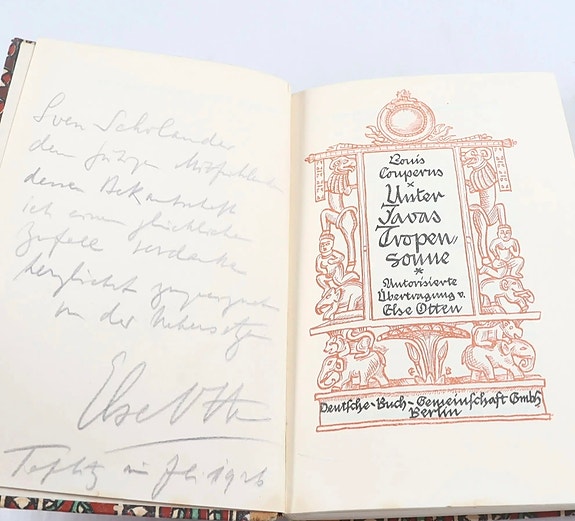 Sven Scholander
dem
deren Bekanntschaft
ich einem glücklichen
Zufall verdanke
herzlichst zugeeignet
von der Uebersetzerin
Else Otten
Teplitz im Juli 1926
Louis
Couperus
*
Unter
Javas
Tropen-
sonne
*
Autorisierte
Übertragung v.
Else Otten
Deutsche-Buch-Gemeinschaft GmbH
Berlin